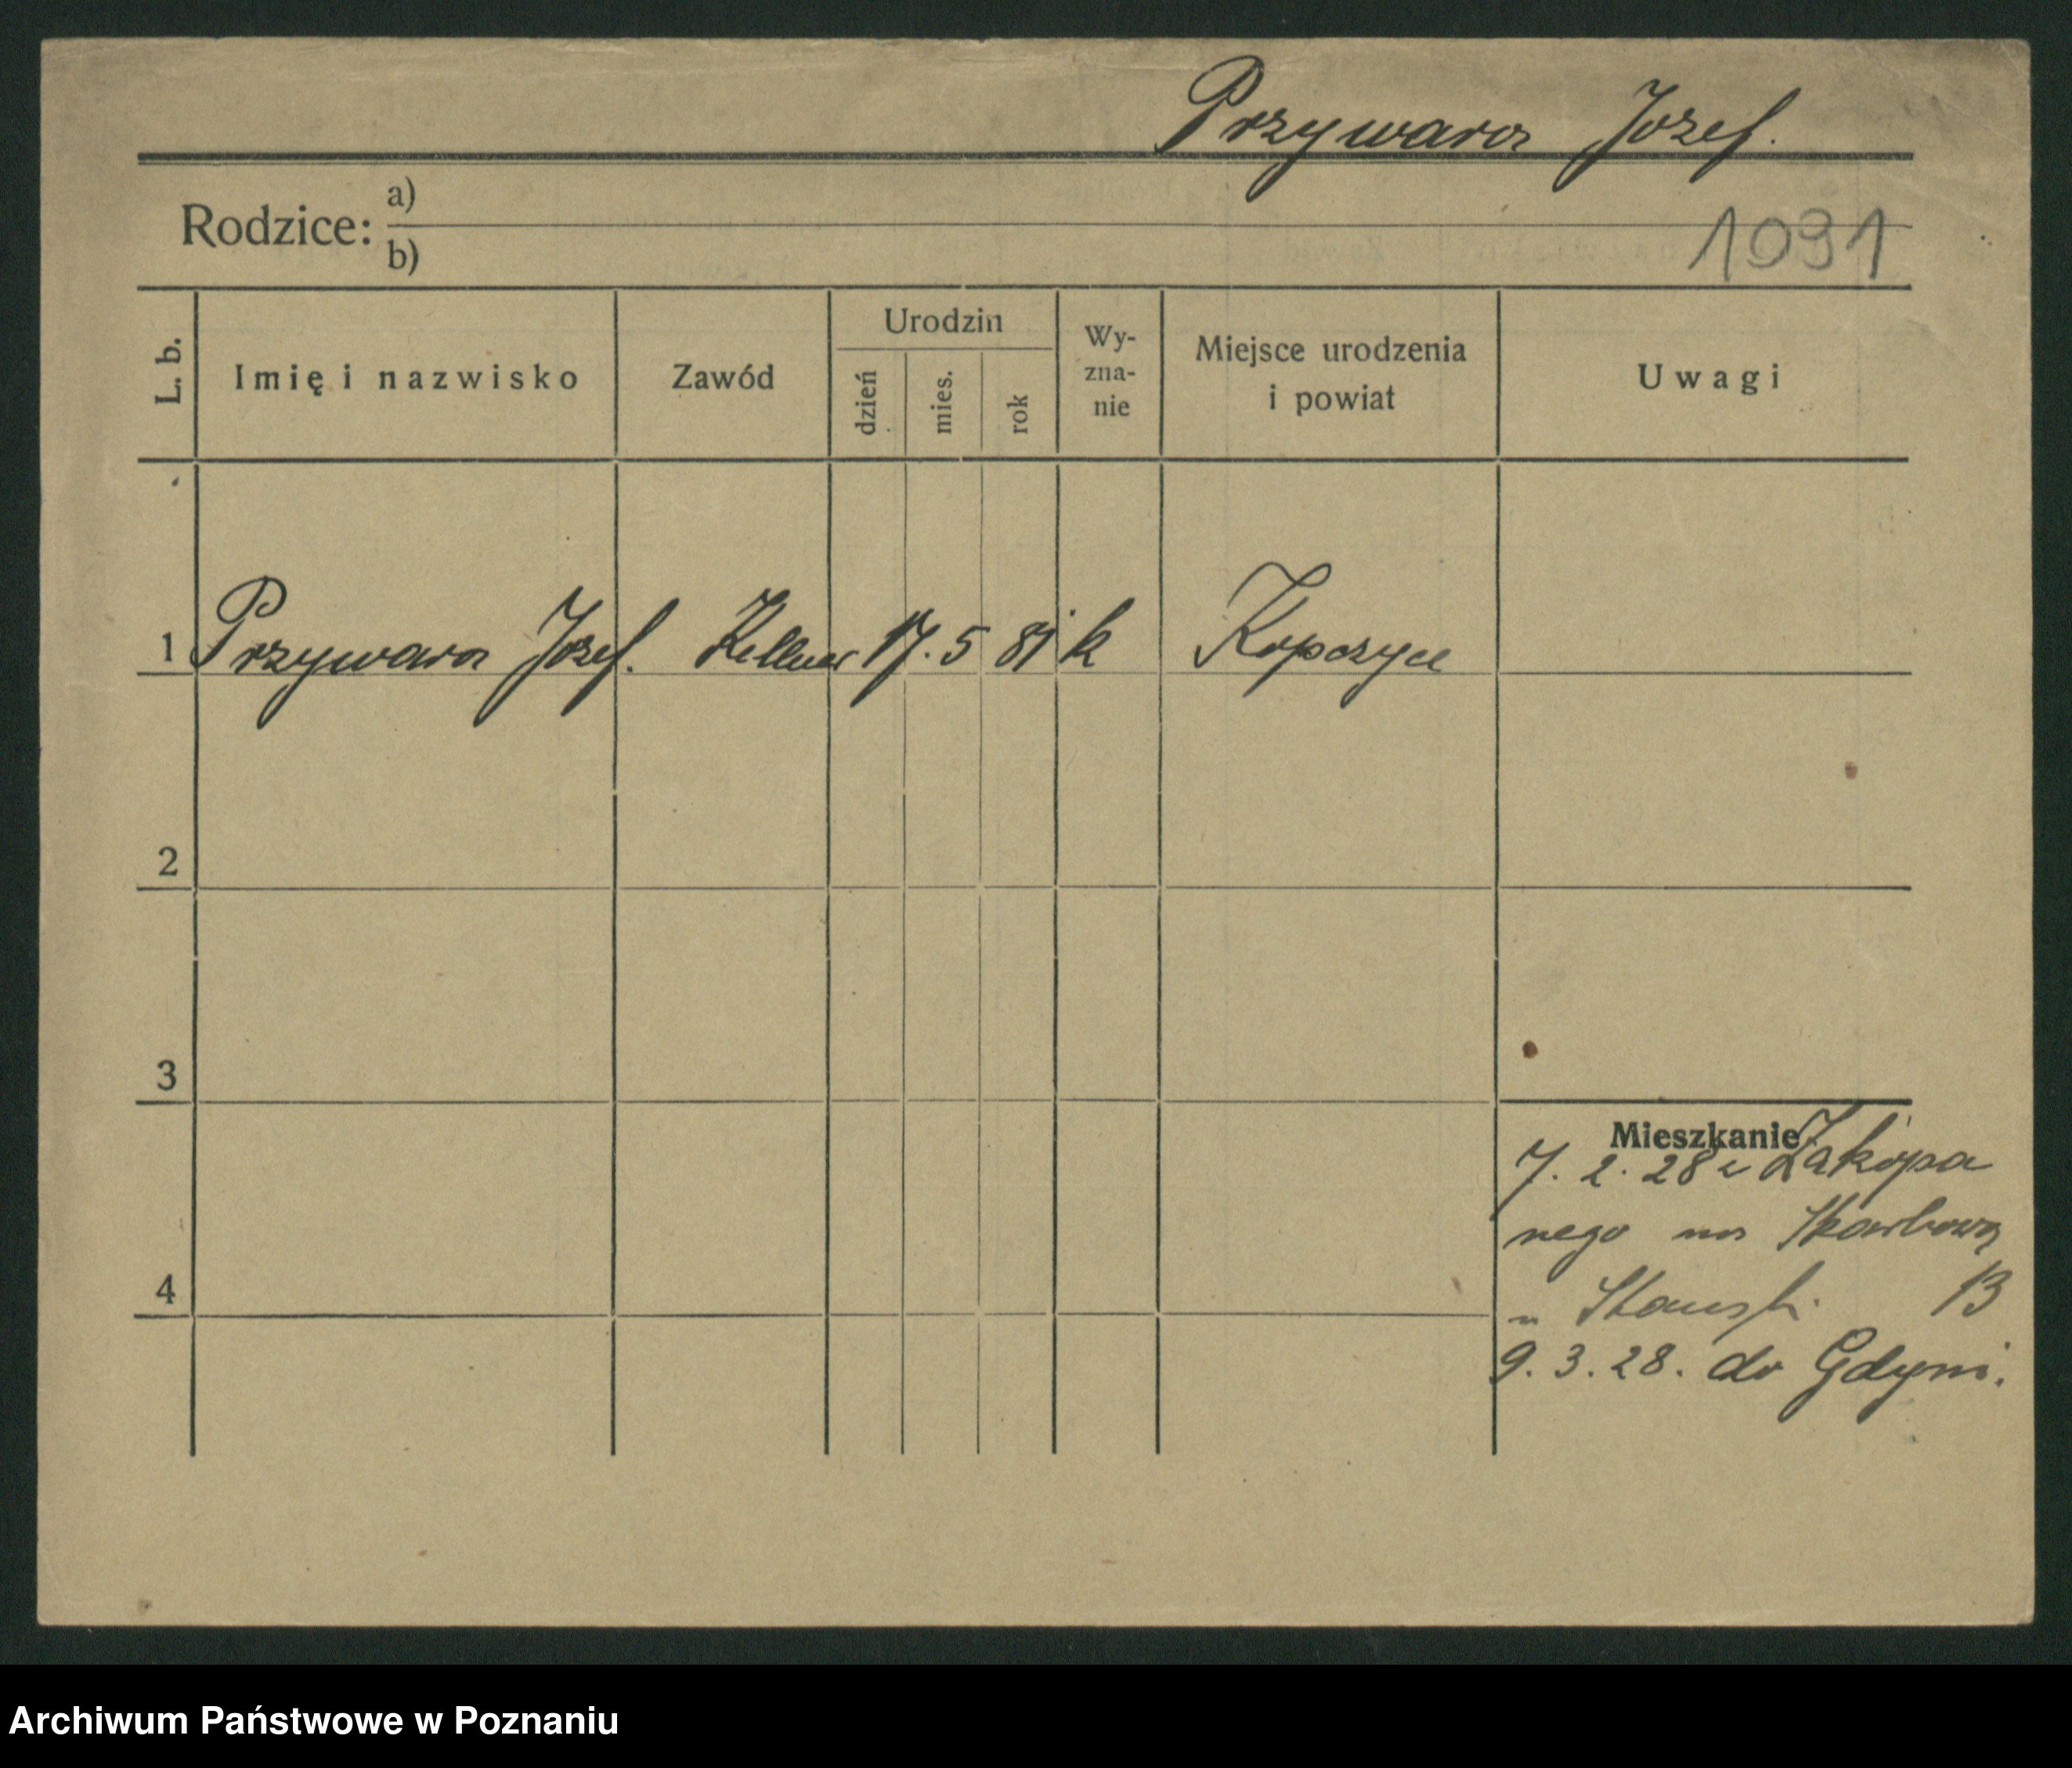 Przywara Jozef.
Rodzice: a)
b)
1091
L. b.
Imię i nazwisko
Zawód
Urodzin
dzień
mies.
rok
Wy-
zna-
nie
Miejsce urodzenia
i powiat
Uwagi
1 Przywara Jozef. Kellner 17. 5 81 k Kopczyce
2
3
4
Mieszkanie
7. 2. 28 z Zakopa
nego na Skarbową
u 13
9. 3. 28. do Gdyni.
Archiwum Państwowe w Poznaniu